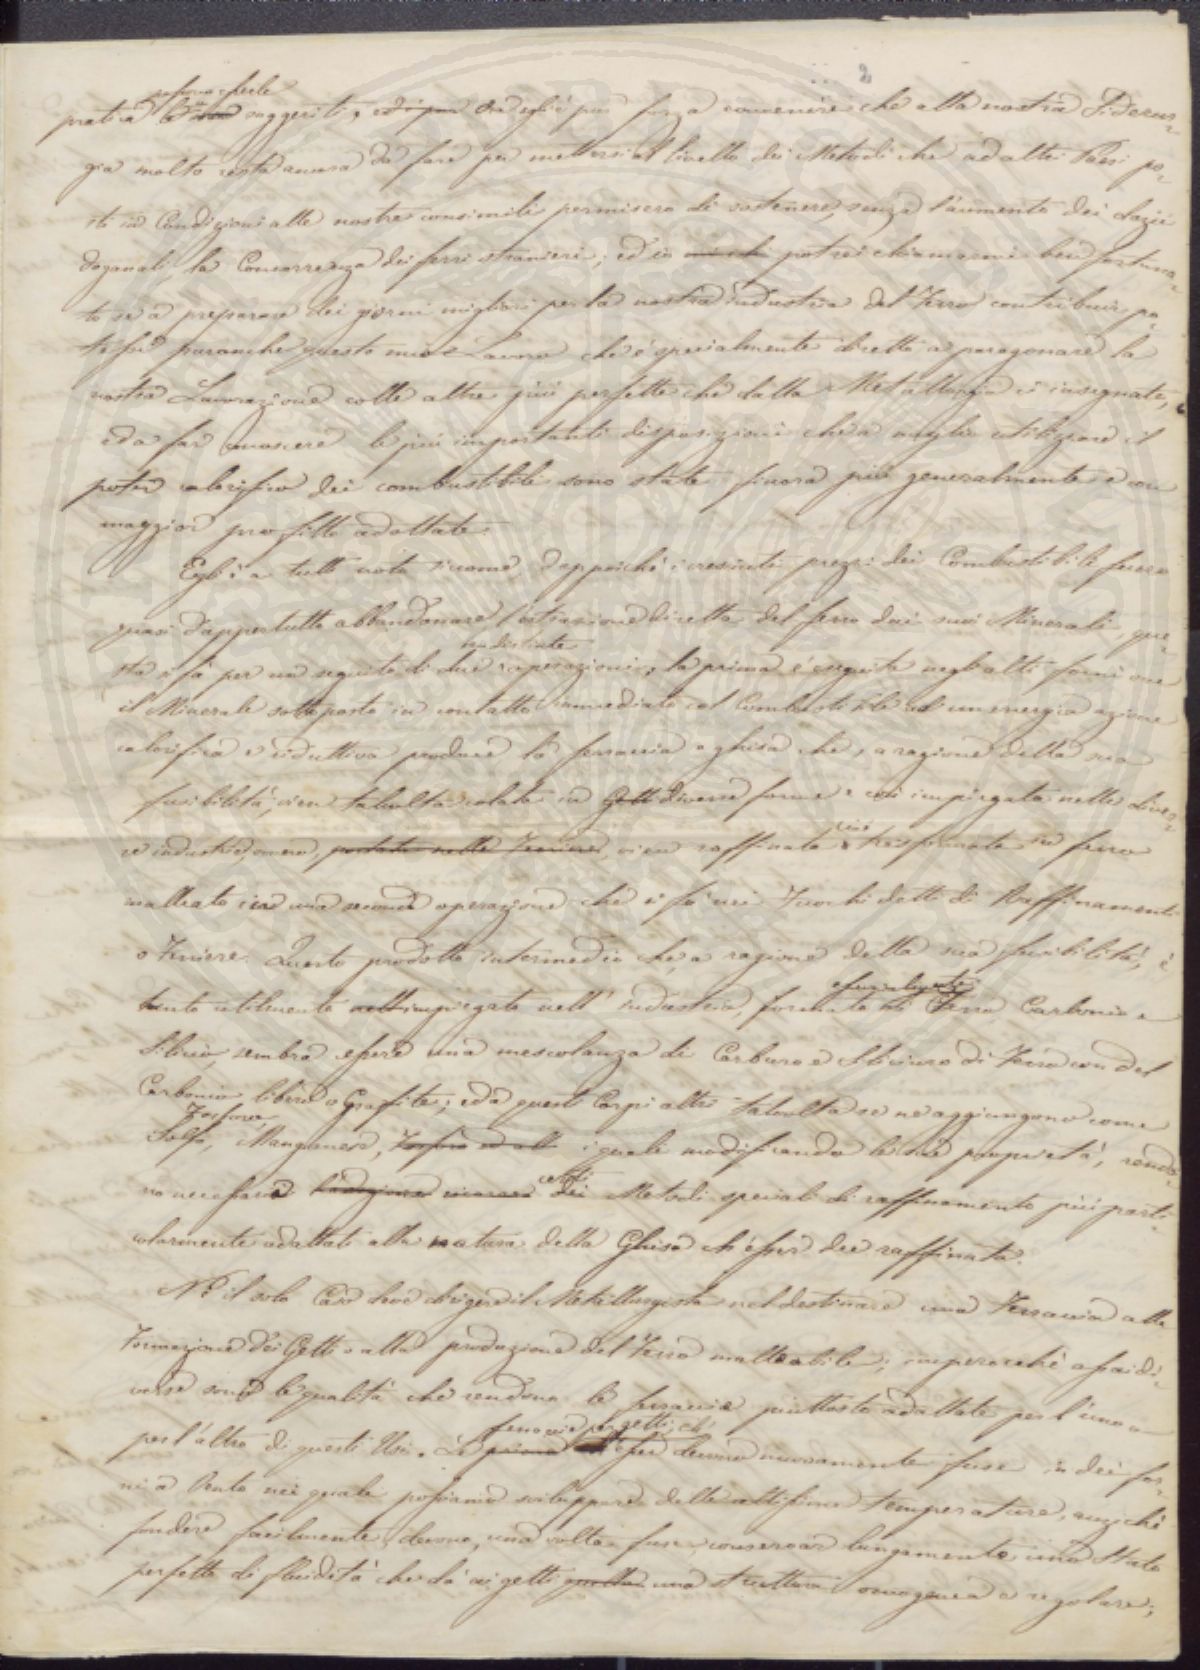 2
pratica suggeriti, ora egli è pur forza convenire che alla nostra Siderur-
gia molto resta ancora da fare per mettersi al livello dei Metodi che ad altri Paesi po-
sti in Condizioni alle nostre consimili permisero di sostenere, senza l'aumento dei dazii
doganali, la Concorrenza dei ferri stranieri; ed io potrei chiamarmi ben fortuna-
to se a preparare dei giorni migliori per la nostra industria del Ferro contribuir po-
tesse puranche questo mio Lavoro che è specialmente diretto a paragonare la
nostra Lavorazione colle altre più perfette che dalla Metallurgia ci insegnate,
ed a far conoscere le più importanti disposizioni che a meglio utilizzare il
poter calorifico dei combustibili sono state finora più generalmente e con
maggior profitto adottate.
Egli è a tutti noto siccome, dappoiché i cresciuti prezzi dei Combustibili fecero
quasi dappertutto abbandonare l'estrazione diretta del ferro dai suoi Minerali, que-
sta si fà per una seguito di due operazioni; la prima è eseguita negli alti forni ove
il Minerale sottoposto in contatto immediato col Combustibile ad un energica azione
calorifica e riduttiva produce la ferraccia o ghisa che, a ragione della sua
fusibilità, vien talvolta colata in Getti diverse forme e così impiegata nelle diver-
se industrie, ovvero, portata nelle Ferriere, vien raffinata cioè trasformata in ferro
malleato con una seconda operazione che si fà nei Fuochi detti di Raffinamenti
o Ferriere. Questo prodotto intermedio che, a ragione della sua fusibilità, è
essenzialmente
tanto utilmente impiegato nell'industria, formato di Ferro, Carbonio e
Silicio, sembra essere una mescolanza di Carburo e Siliciuro di Ferro con del
Carbonio libero o Grafite; ed a questi Corpi altri talvolta se ne aggiungono come
Fosforo,
Solfo, Manganese, Fosforo ed altri i quali modificando le sue proprietà, rendo-
no necessarii certi dei Metodi speciali di raffinamento più parti-
colarmente adattati alla natura della Ghisa ch'esser dee raffinata.
Nè il solo Caso deve dirigere il Metallurgista nel destinare una Ferraccia alla
Formazione dei Getti o alla produzione del Ferro malleabile; imperocchè assai di-
verse sono le qualità che rendono le ferraccie piuttosto adattate per l'uno o
per l'altro di questi Usi. Le prime
ferraccie per getti, ch'
esser devono nuovamente fuse in dei for-
ni a Vento nei quali possiamo sviluppare delle altissime temperature, anzichè
fondere facilmente, devono, una volta fuse, conservar lungamente uno Stato
perfetto di fluidità che dà ai getti una struttura omogenea e regolare;